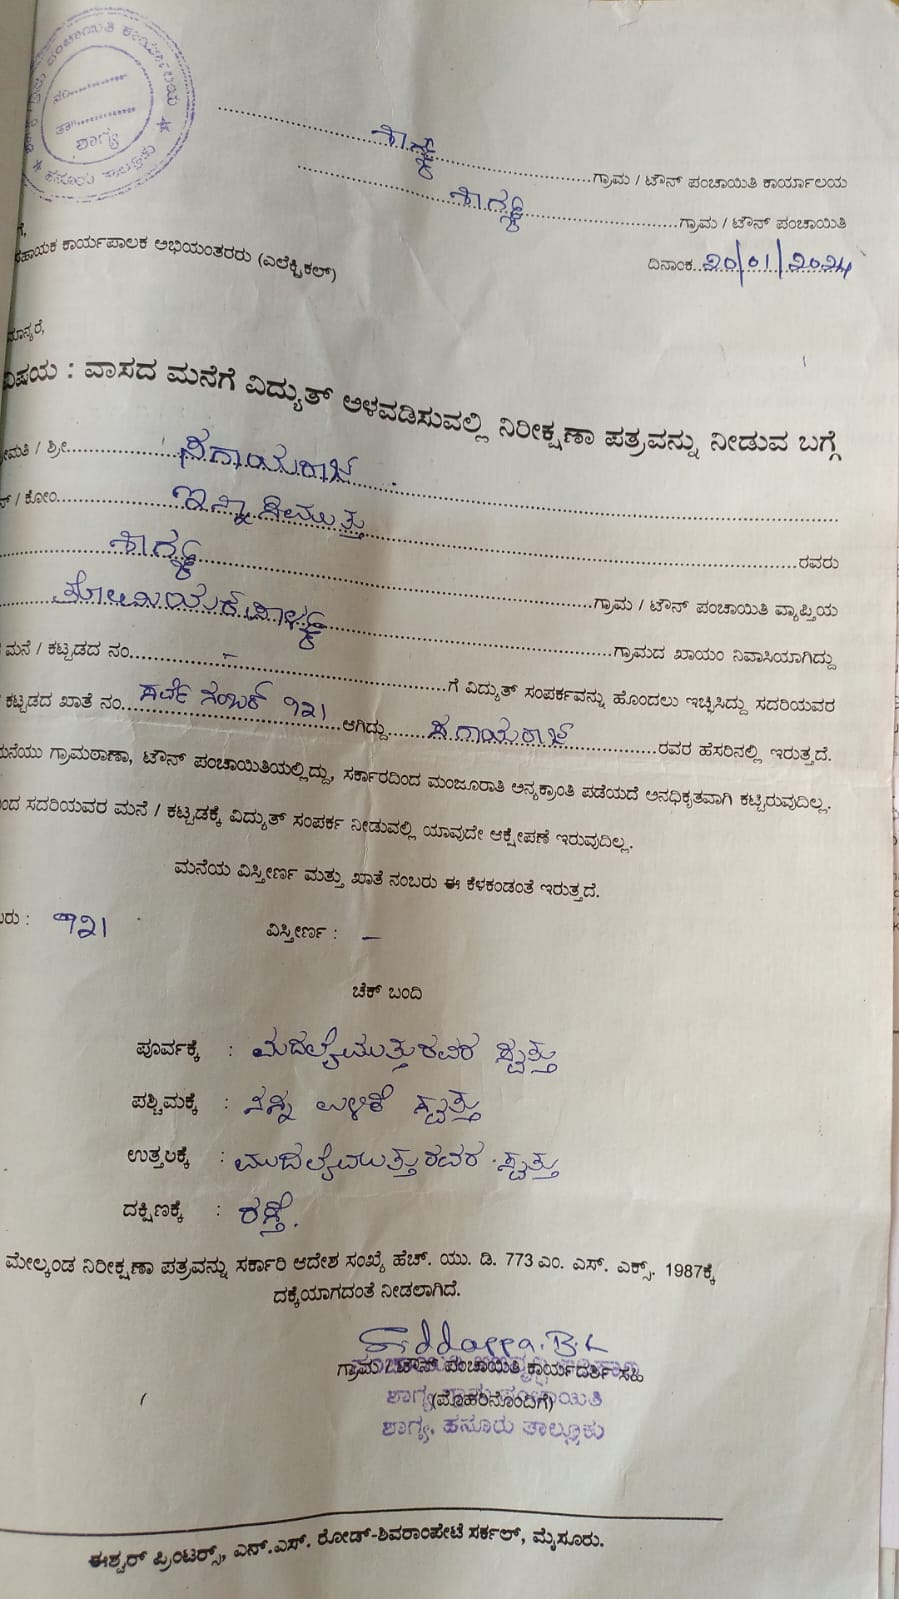 ಶಾಗ್ಯ
ಗ್ರಾಮ / ಟೌನ್ ಪಂಚಾಯಿತಿ ಕಾರ್ಯಾಲಯ
ಶಾಗ್ಯ
ಗ್ರಾಮ / ಟೌನ್ ಪಂಚಾಯಿತಿ
ದಿನಾಂಕ 20/01/2024
ಕಾರ್ಯಪಾಲಕ ಅಭಿಯಂತರರು (ಎಲೆಕ್ಟ್ರಿಕಲ್)
ಮಾನ್ಯರೆ,
ವಿಷಯ : ವಾಸದ ಮನೆಗೆ ವಿದ್ಯುತ್ ಅಳವಡಿಸುವಲ್ಲಿ ನಿರೀಕ್ಷಣಾ ಪತ್ರವನ್ನು ನೀಡುವ ಬಗ್ಗೆ
/ ಶ್ರೀ
/ ಕೋಂ ರವರು
ಶಾಗ್ಯ ಗ್ರಾಮ / ಟೌನ್ ಪಂಚಾಯಿತಿ ವ್ಯಾಪ್ತಿಯ
ಗ್ರಾಮದ ಖಾಯಂ ನಿವಾಸಿಯಾಗಿದ್ದು
ಮನೆ / ಕಟ್ಟಡದ ನಂ. – ಗೆ ವಿದ್ಯುತ್ ಸಂಪರ್ಕವನ್ನು ಹೊಂದಲು ಇಚ್ಛಿಸಿದ್ದು ಸದರಿಯವರ
ಕಟ್ಟಡದ ಖಾತೆ ನಂ. ಸರ್ವೆ ನಂಬರ್ ೧೨೧ ಆಗಿದ್ದು ರವರ ಹೆಸರಿನಲ್ಲಿ ಇರುತ್ತದೆ.
ಗ್ರಾಮಠಾಣಾ, ಟೌನ್ ಪಂಚಾಯಿತಿಯಲ್ಲಿದ್ದು, ಸರ್ಕಾರದಿಂದ ಮಂಜೂರಾತಿ ಅನ್ಯಕ್ರಾಂತಿ ಪಡೆಯದೆ ಅನಧಿಕೃತವಾಗಿ ಕಟ್ಟಿರುವುದಿಲ್ಲ.
ಸದರಿಯವರ ಮನೆ / ಕಟ್ಟಡಕ್ಕೆ ವಿದ್ಯುತ್ ಸಂಪರ್ಕ ನೀಡುವಲ್ಲಿ ಯಾವುದೇ ಆಕ್ಷೇಪಣೆ ಇರುವುದಿಲ್ಲ.
ಮನೆಯ ವಿಸ್ತೀರ್ಣ ಮತ್ತು ಖಾತೆ ನಂಬರು ಈ ಕೆಳಕಂಡಂತೆ ಇರುತ್ತದೆ.
೧೨೧ ವಿಸ್ತೀರ್ಣ : –
ಚೆಕ್ ಬಂದಿ
ಪೂರ್ವಕ್ಕೆ : ಸ್ವತ್ತು
ಪಶ್ಚಿಮಕ್ಕೆ : ನನ್ನ ಉಳಿಕೆ ಸ್ವತ್ತು
ಉತ್ತರಕ್ಕೆ : ಸ್ವತ್ತು
ದಕ್ಷಿಣಕ್ಕೆ : ರಸ್ತೆ.
ಮೇಲ್ಕಂಡ ನಿರೀಕ್ಷಣಾ ಪತ್ರವನ್ನು ಸರ್ಕಾರಿ ಆದೇಶ ಸಂಖ್ಯೆ ಹೆಚ್. ಯು. ಡಿ. 773 ಎಂ. ಎಸ್. ಎಕ್ಸ್. 1987ಕ್ಕೆ
ದಕ್ಕೆಯಾಗದಂತೆ ನೀಡಲಾಗಿದೆ.
ಗ್ರಾಮ / ಟೌನ್ ಪಂಚಾಯಿತಿ ಕಾರ್ಯದರ್ಶಿ ಸಹಿ
(ಮೊಹರಿನೊಂದಿಗೆ)
ಶಾಗ್ಯ, ಹನೂರು ತಾಲ್ಲೂಕು
ಈಶ್ವರ್ ಪ್ರಿಂಟರ್ಸ್, ಎನ್.ಎಸ್. ರೋಡ್-ಶಿವರಾಂಪೇಟೆ ಸರ್ಕಲ್, ಮೈಸೂರು.